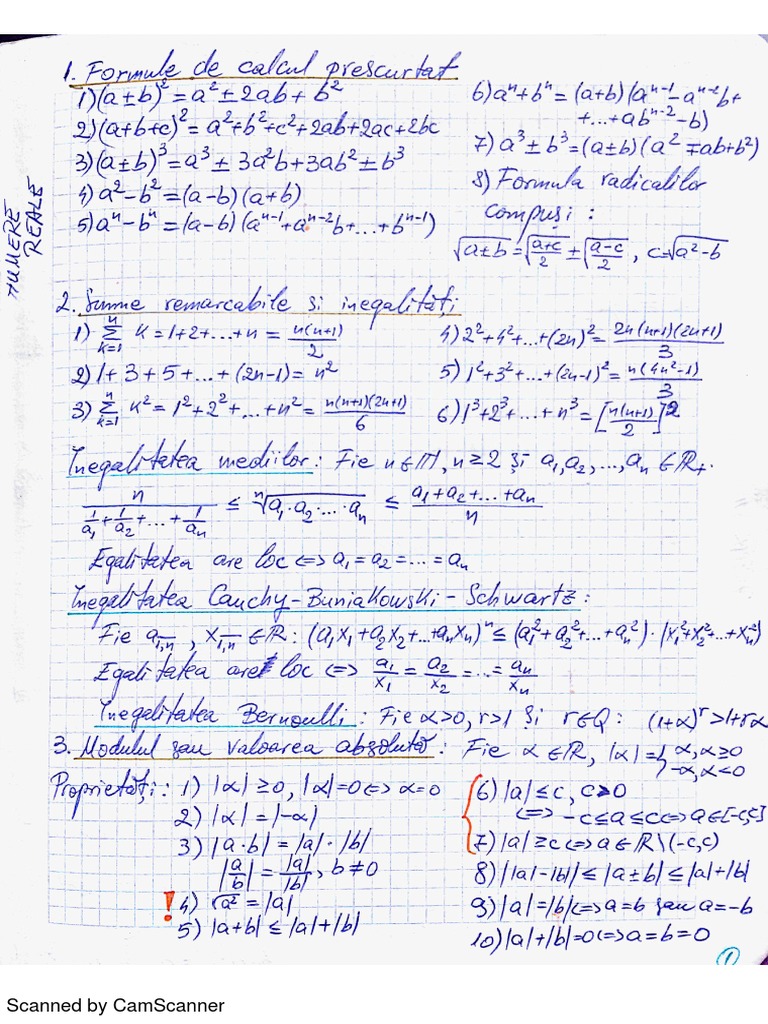 NUMERE REALE
1. Formule de calcul prescurtat
1) (a±b)² = a² ± 2ab + b²
2) (a+b+c)² = a²+b²+c²+2ab+2ac+2bc
3) (a±b)³ = a³ ± 3a²b + 3ab² ± b³
4) a² - b² = (a-b)(a+b)
5) aⁿ - bⁿ = (a-b)(aⁿ⁻¹+aⁿ⁻²b+...+bⁿ⁻¹)
6) aⁿ+bⁿ = (a+b)(aⁿ⁻¹-aⁿ⁻²b+
+...+abⁿ⁻²-b)
7) a³±b³ = (a±b)(a²∓ab+b²)
8) Formula radicalilor
compuși:
√(a±b) = √((a+c)/2) ± √((a-c)/2), c=√(a²-b)
2. Sume remarcabile și inegalități
1) ∑_{k=1}^{n} k = 1+2+...+n = n(n+1)/2
2) 1+3+5+...+(2n-1) = n²
3) ∑_{k=1}^{n} k² = 1²+2²+...+n² = n(n+1)(2n+1)/6
4) 2²+4²+...+(2n)² = 2n(n+1)(2n+1)/3
5) 1²+3²+...+(2n-1)² = n(4n²-1)/3
6) 1³+2³+...+n³ = [n(n+1)/2]²
Inegalitatea mediilor: Fie n∈ℕ, n≥2 și a₁,a₂,...,aₙ ∈ ℝ₊.
n/(1/a₁+1/a₂+...+1/aₙ) ≤ ⁿ√(a₁·a₂·...·aₙ) ≤ (a₁+a₂+...+aₙ)/n
Egalitatea are loc ⇔ a₁=a₂=...=aₙ
Inegalitatea Cauchy-Buniakowski-Schwartz:
Fie a_{1,n}, x_{1,n} ∈ ℝ: (a₁x₁+a₂x₂+...+aₙxₙ)ⁿ ≤ (a₁²+a₂²+...+aₙ²)·(x₁²+x₂²+...+xₙ²)
Egalitatea are loc ⇔ a₁/x₁ = a₂/x₂ = ... = aₙ/xₙ
Inegalitatea Bernoulli: Fie α>0, r>1 și r∈Q: (1+α)ʳ>1+rα
3. Modulul sau valoarea absolută: Fie α∈ℝ, |α|={α, α≥0
-α, α<0
Proprietăți: 1) |α| ≥0, |α|=0 ⇔ α=0
2) |α| = |-α|
3) |a·b| = |a|·|b|
|a/b| = |a|/|b|, b≠0
! 4) √a² = |a|
5) |a+b| ≤ |a|+|b|
6) |a| ≤ c, c>0
⇔ -c≤a≤c ⇔ a∈[-c,c]
7) |a| ≥ c ⇔ a∈ℝ\(-c,c)
8) ||a|-|b|| ≤ |a±b| ≤ |a|+|b|
9) |a|=|b| ⇔ a=b sau a=-b
10) |a|+|b|=0 ⇔ a=b=0
1
Scanned by CamScanner